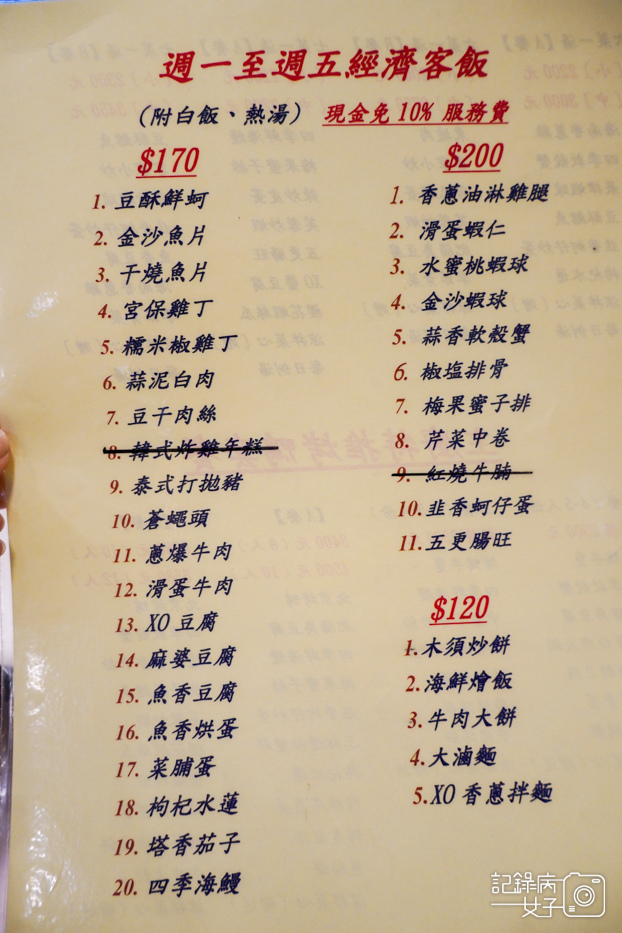 週一至週五經濟客飯
（附白飯、熱湯） 現金免 10% 服務費
$170
1. 豆酥鮮蚵
2. 金沙魚片
3. 干燒魚片
4. 宮保雞丁
5. 糯米椒雞丁
6. 蒜泥白肉
7. 豆干肉絲
8. 韓式炸雞年糕
9. 泰式打拋豬
10. 蒼蠅頭
11. 蔥爆牛肉
12. 滑蛋牛肉
13. XO 豆腐
14. 麻婆豆腐
15. 魚香豆腐
16. 魚香烘蛋
17. 菜脯蛋
18. 枸杞水蓮
19. 塔香茄子
20. 四季海鰻
$200
1. 香蔥油淋雞腿
2. 滑蛋蝦仁
3. 水蜜桃蝦球
4. 金沙蝦球
5. 蒜香軟殼蟹
6. 椒塩排骨
7. 梅果蜜子排
8. 芹菜中卷
9. 紅燒牛腩
10. 韭香蚵仔蛋
11. 五更腸旺
$120
1. 木須炒餅
2. 海鮮燴飯
3. 牛肉大餅
4. 大滷麵
5. XO 香蔥拌麵
記錄病
女子